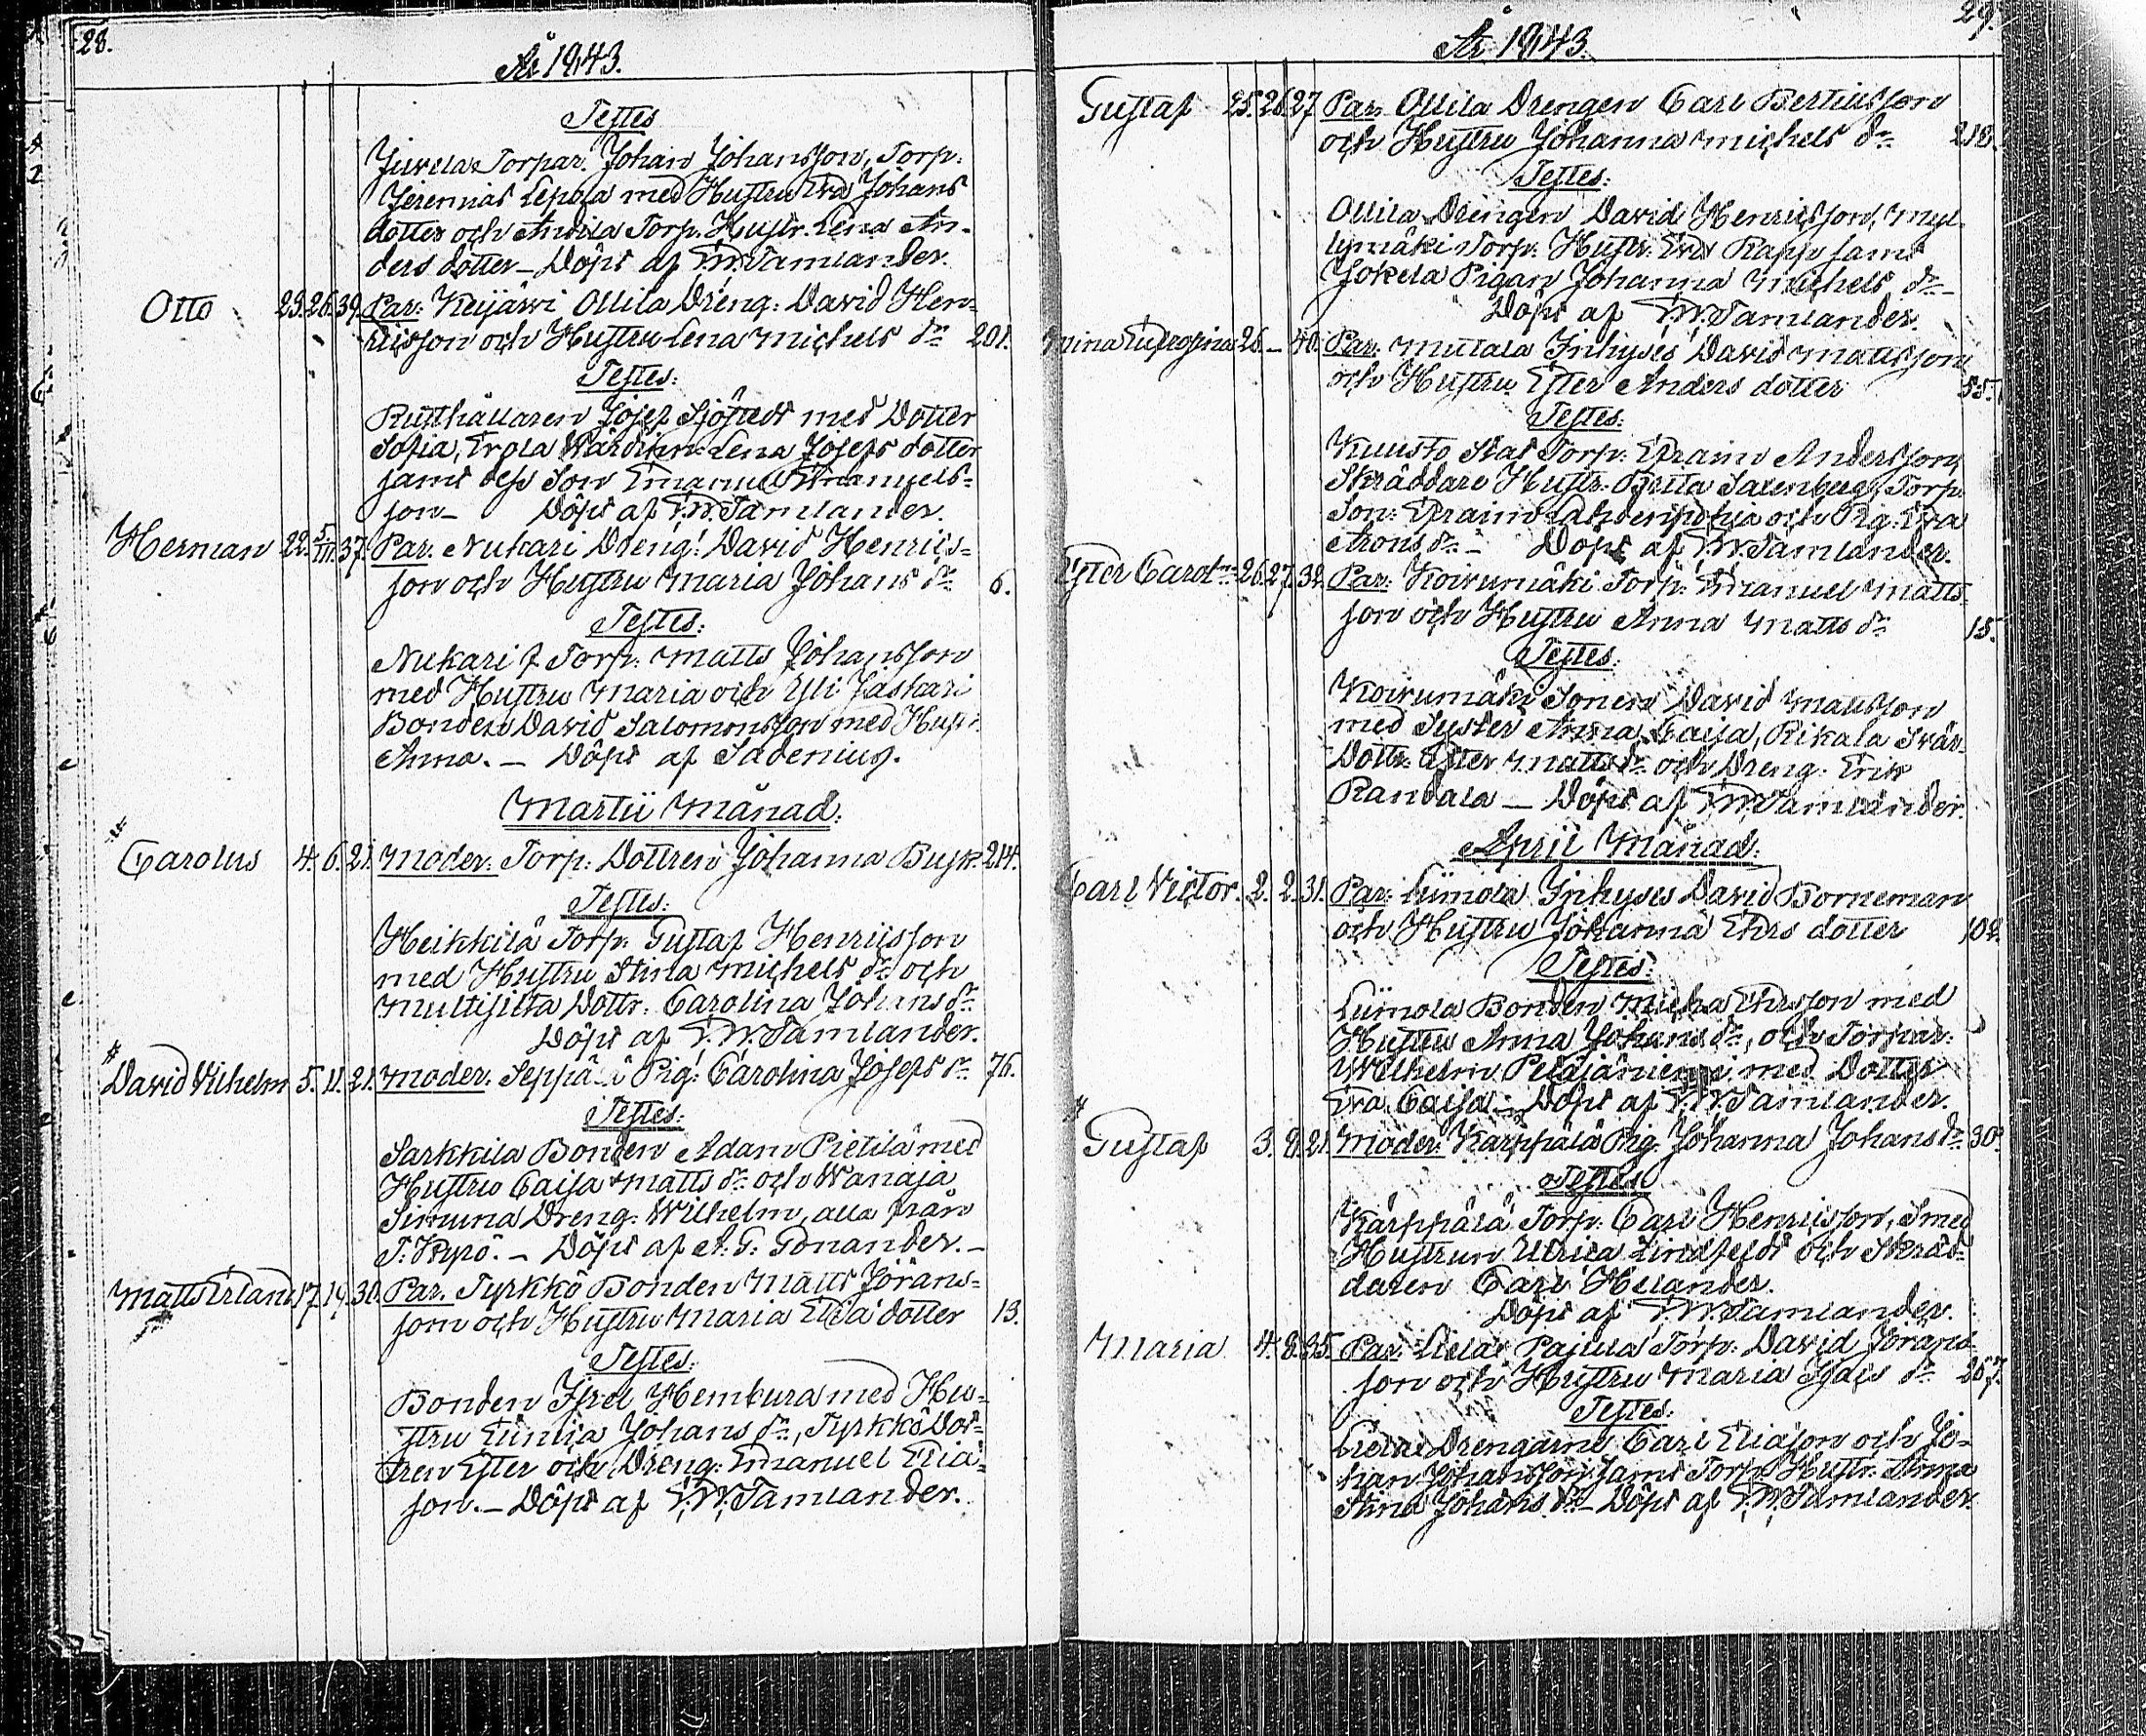 28.
År 1843.
Testes
Juvela Torpar. Johan Johansson, Torp:
Jeremias Lepola med Hustru Eva Johans
dotter och Anvila Torp. Hustr. Lena An-
ders dotter – Döpt af F.W. Tamlander.
Otto 23. 26. 39. Par: Keijärvi Ollila Dräng: David Hen-
ricsson och Hustru Lena Michels dr 201.
Testes:
Rusthållaren Josef Sjöstedt med Dotter
Sofia, Erola Värdinn: Lena Josefs dotter
samt dess Son Emanuel Emanuels-
son – Döpt af F.W. Tamlander.
Herman 22. 5/III. 37. Par. Nukari Dreng: David Henrics-
son och Hustru Maria Johans dr 6.
Testes:
Nukari Torp: Matts Johansson
med Hustru Maria och Yli Jaskari
Bonden David Salomonsson med Hustr.
Anna. – Döpt af Sadenius.
Martii Månad.
Carolus 4. 6. 21. Moder: Torp: Dottren Johanna Busk 214.
Testes:
Heikkilä Torp: Gustaf Henricsson
med Hustru Stina Michels dr och
Multisilta Dottr. Carolina Johans dr
Döpt af F.W. Tamlander.
David Vilhelm 5. 11. 21. Moder. Seppälä Pig: Carolina Josefs dr 76.
Testes:
Sarkkila Bonden Adam Pietilä med
Hustru Caisa Matts dr och Wanaja
Simuna Dreng. Wilhelm, alla från
T. Kyrö. – Döpt af A. G. Gonander. –
Matts Erland 17. 19. 30. Par. Tyrkkö Bonden Matts Jörans-
son och Hustru Maria Elia dotter 13.
Testes.
Bonden Isrel Hemkura med Hu-
stru Eunica Johans dr, Tyrkkö Dot-
tren Ester och Dreng: Emanuel Elia-
son. – Döpt af F.W. Tamlander.
29.
År 1843.
Gustaf 25. 26. 27. Par. Ollila Drengen Carl Bertilsson
och Hustru Johanna Michels dr 218.
Testes:
Ollila Drengen David Henricsson, Myl-
lymäki Torp: Hustr: Eva Rapp samt
Jokela Pigan Johanna Michels dr –
Döpt af F.W. Tamlander.
Mina Eufrosina 26. – 40. Par. Mutala Inhyses David Mattsson
och Hustru Ester Anders dotter 55.
Testes:
Kuusto Skat Torp: Efraim Andersson,
Skräddare Hustr. Brita Salenberg, Torp.
Son: Efraim och Pig: Eva
Arons dr – Döpt af F.W. Tamlander.
Ester Carol: 26. 27. 32. Par: Koivumäki Torp: Emanuel Matts-
son och Hustru Anna Matts dr 15.
Testes:
Koivumäki Sonen David Mattsson
med Syster Anna Caisa, Rikala Svär
Dottr: Ester Matts dr och Dreng. Erik
Randala – Döpt af F.W. Tamlander.
April Månad.
Carl Victor. 2. 2. 31. Par: Liimola Inhyses David Borneman
och Hustru Johanna Ehrs dotter 102.
Testes:
Liimola Bonden Micha Ehrsson med
Hustru Anna Johans dr, och Torpar.
Wilhelm Petäjäniemi med Dotter
Eva Caisa – Döpt af F.W. Tamlander.
Gustaf 3. 8. 21. Moder. Kärppälä Pig. Johanna Johans dr 30.
Testes
Kärppälä Torp: Carl Henricsson, Smed
Hustrun Ulrica Lindfeldt och Skräd-
daren Carl Helander.
Döpt af F.W. Tamlander.
Maria 4. 8. 35. Par. Pajula Torp: David Jörans-
son och Hustru Maria Isacs dr 267.
Testes:
Drengarne Carl Eliason och Jo-
han Johansson, samt Torp: Hustr. Anna
Stina Johans dr – Döpt af F.W. Tamlander.